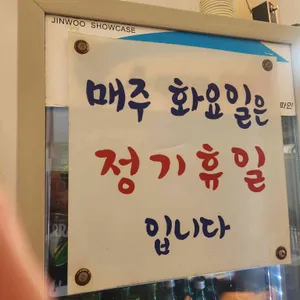 JINWOO SHOWCASE
매주 화요일은
정기휴일
입니다